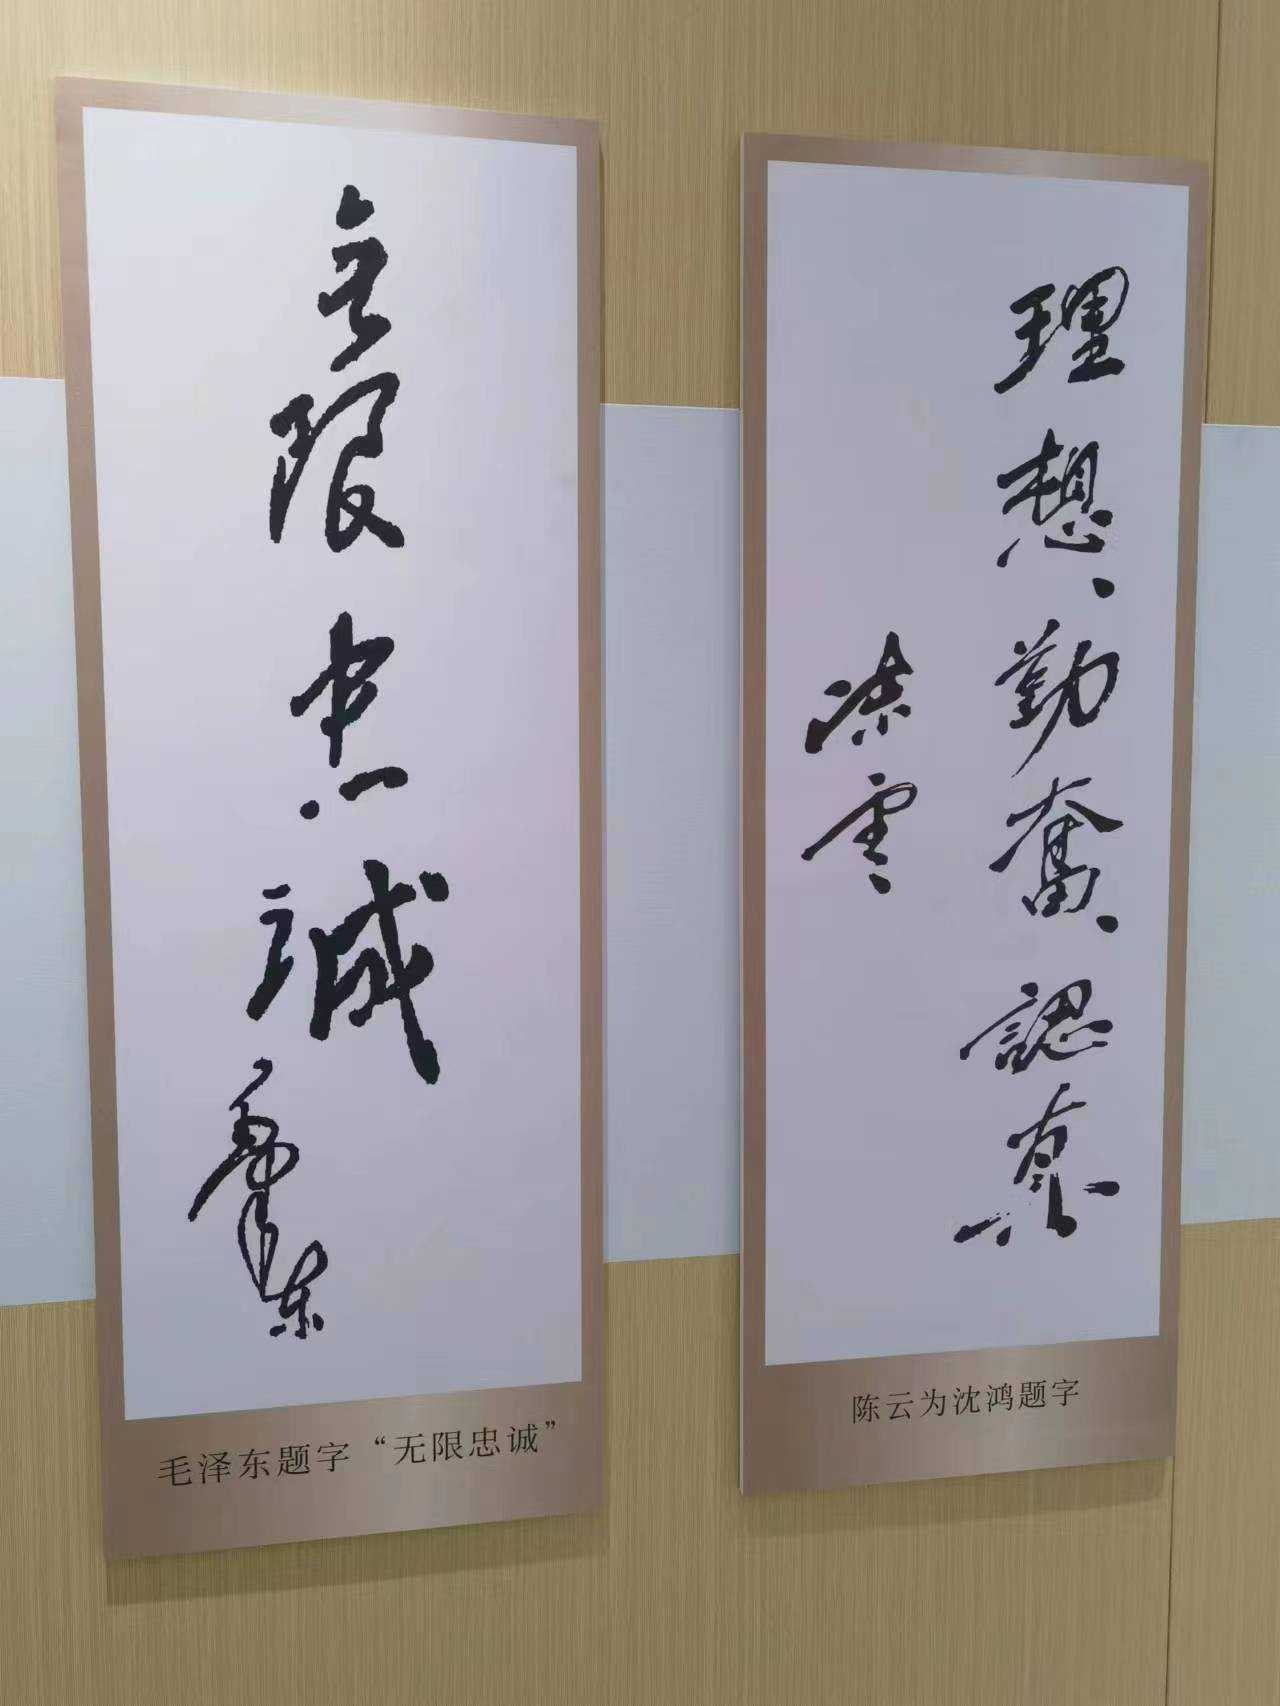 无限忠誠
毛泽东
毛泽东题字“无限忠诚”
理想、勤奮、認真
陳雲
陈云为沈鸿题字